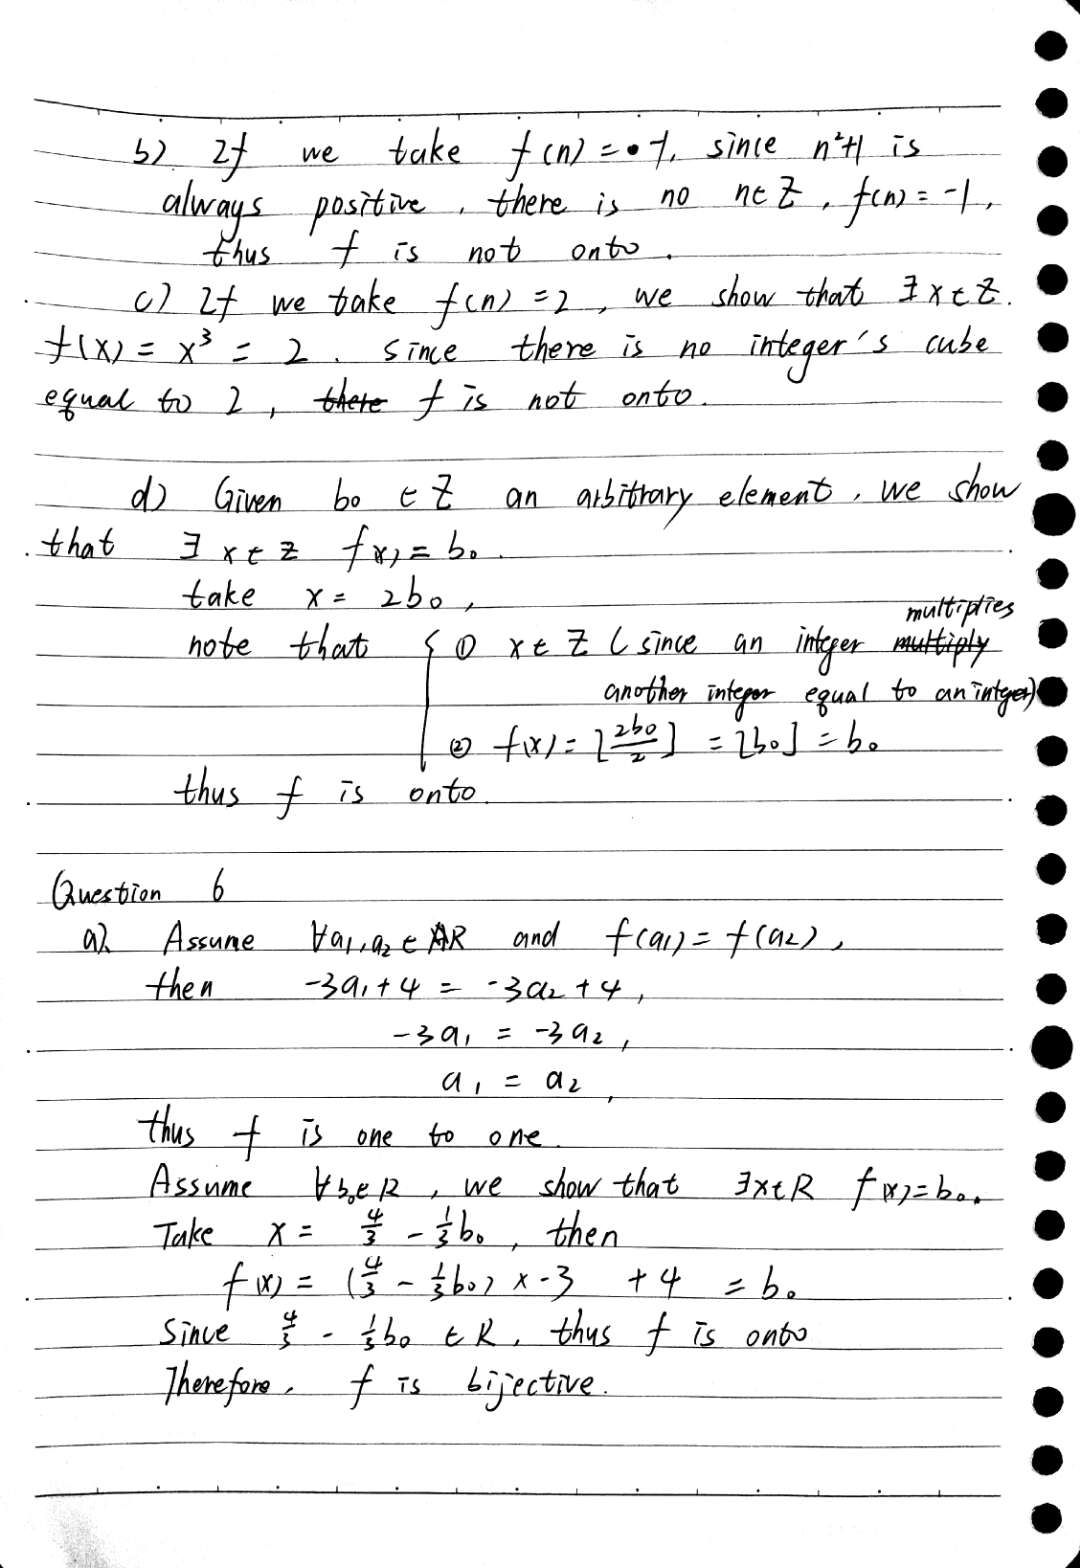 b) If we take f(n) = -1, since n²+1 is
always positive, there is no n∈Z, f(n) = -1,
thus f is not onto.
c) If we take f(n) = 2, we show that ∃x∈Z.
f(x) = x³ = 2. Since there is no integer's cube
equal to 2, ~~there~~ f is not onto.
d) Given b₀ ∈ Z an arbitrary element, we show
that ∃x∈Z f(x) = b₀.
take x = 2b₀,
multiplies
note that { ① x∈Z (since an integer ~~multiply~~
another integer equal to an integer)
② f(x) = ⌊2b₀/2⌋ = ⌊b₀⌋ = b₀
thus f is onto.
Question 6
a). Assume ∀a₁,a₂∈R and f(a₁) = f(a₂),
then -3a₁+4 = -3a₂+4,
-3a₁ = -3a₂,
a₁ = a₂,
thus f is one to one.
Assume ∀b₀∈R, we show that ∃x∈R f(x)=b₀.
Take x = 4/3 - 1/3 b₀, then
f(x) = (4/3 - 1/3 b₀) × -3 + 4 = b₀
Since 4/3 - 1/3 b₀ ∈ R, thus f is onto
Therefore, f is bijective.